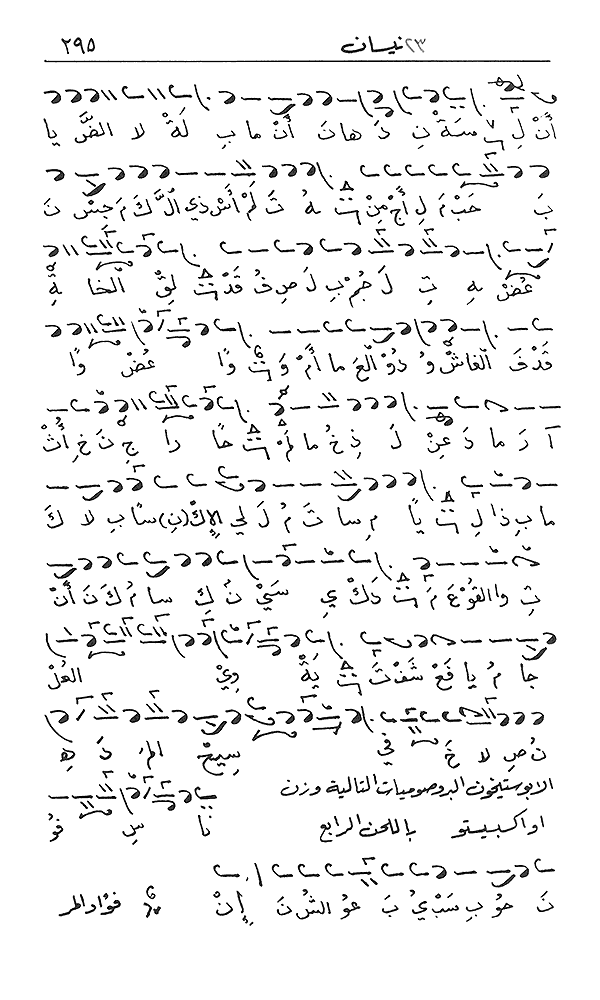 ٢٣ نيسان ٢٩٥
أَنْ لِ سَةْ نِ دَ هانَ أَنْ ما بِ لَةْ لا الضَّ يا
بَ حَبْ مَ لِ أَجْ مِنْ هُ تَ لَمْ أَسْ ذي الَّ كَ مَ جِسْ نَ
غَضْ بِهِ تِ لَ جُمْ بِ لَ صِ فُ قَدْ لِقْ الْخا
قَدْفَ الْفاسْ وُ ذُوْ الْعَ ما أَمْ وَ وًا عُضْ وًا
آ رَ ما دَ عِنْ لَ ذِ خُ ما لَمْ حًا را جْ نَ خِ أُثْ
ما بِ ذا لِ يًا مِ سا تَ مُ لَ لي الإِكْ (نِ) سًا بِ لا كَ
تِ والقُوْ عَ مَ دَكْ يِ سَيْ نَ كِ سا مُ كَ نَ أَنْ
جا مُ يا فَعْ شَفْ تَ يَةْ وِيْ العُلْ
نُ صِ لا خَ في سِيحْ المَ دَ هِ
الابوستيخون البروصوميات التالية وزن
اواكسبيتو باللحن الرابع نا سِ فُو
نَ حوْ بِ سَبْ يُ بَ عوْ الشُ نَ إِنْ فؤاد المر